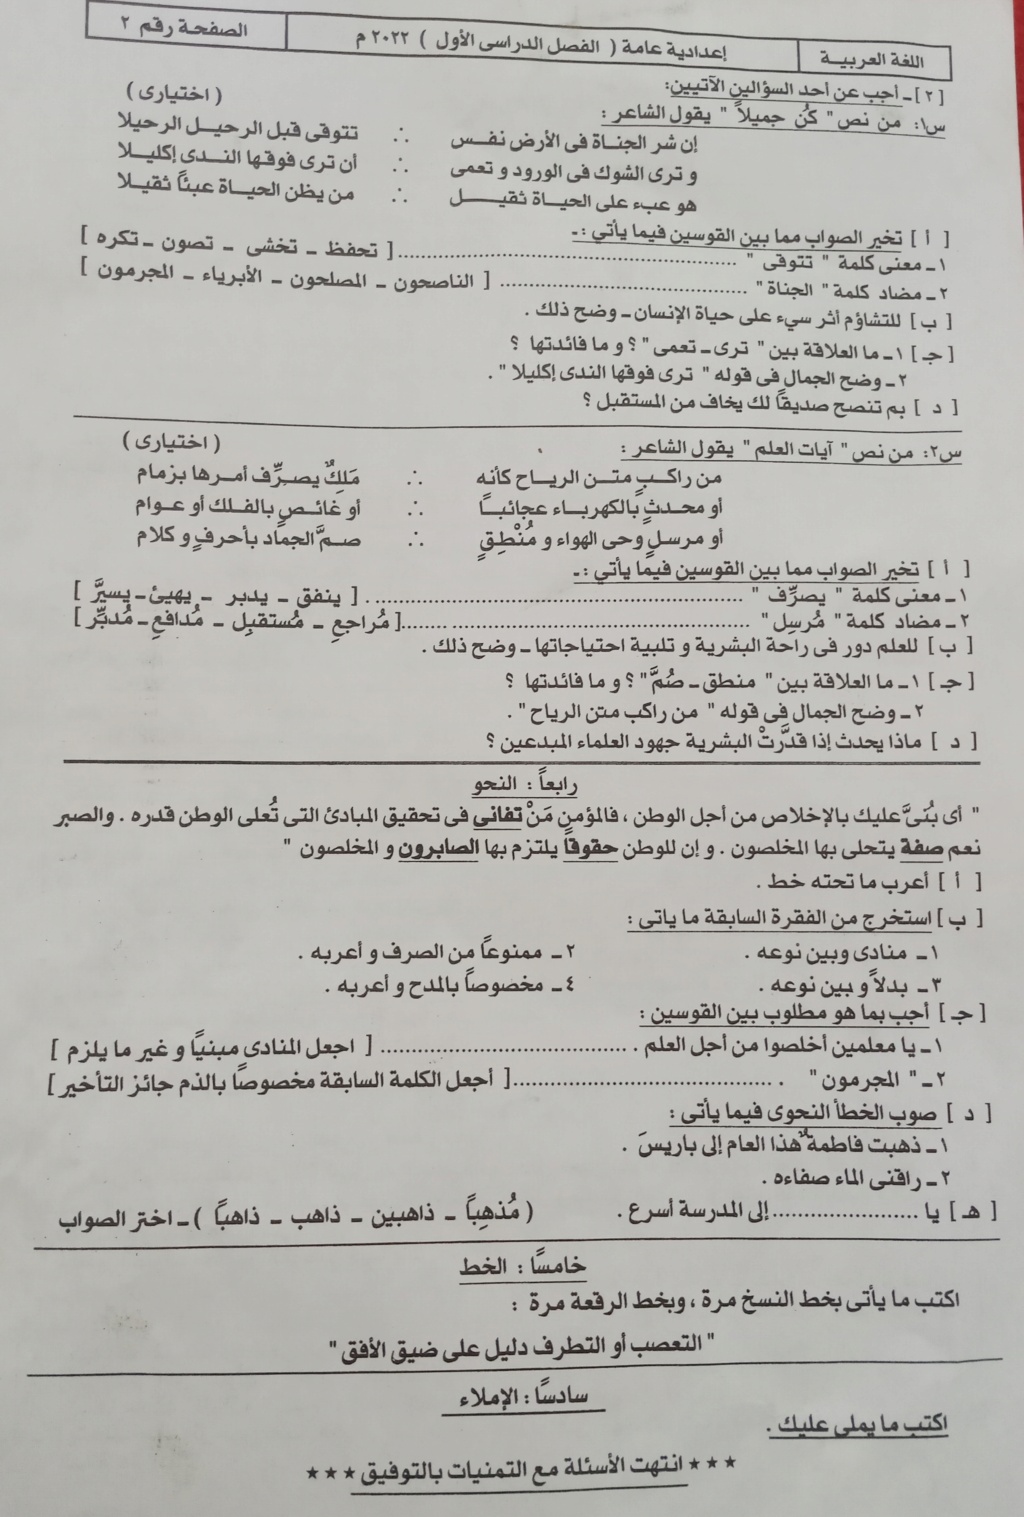 اللغة العربية إعدادية عامة ( الفصل الدراسى الأول ) ٢٠٢٢ م الصفحة رقم ٢
[ ٢ ] ـ أجب عن أحد السؤالين الآتيين:
س١: من نص " كُن جميلاً " يقول الشاعر : ( اختيارى )
إن شر الجناة فى الأرض نفس ∴ تتوقى قبل الرحيل الرحيلا
و ترى الشوك فى الورود و تعمى ∴ أن ترى فوقها الندى إكليلا
هو عبء على الحياة ثقيل ∴ من يظن الحياة عبئاً ثقيلا
[ أ ] تخير الصواب مما بين القوسين فيما يأتى :ـ
١ ـ معنى كلمة " تتوقى " .................... [ تحفظ ـ تخشى ـ تصون ـ تكره ]
٢ ـ مضاد كلمة " الجناة " .................... [ الناصحون ـ المصلحون ـ الأبرياء ـ المجرمون ]
[ ب ] للتشاؤم أثر سيء على حياة الإنسان ـ وضح ذلك .
[ جـ ] ١ ـ ما العلاقة بين " ترى ـ تعمى " ؟ و ما فائدتها ؟
٢ ـ وضح الجمال فى قوله " ترى فوقها الندى إكليلا " .
[ د ] بم تنصح صديقاً لك يخاف من المستقبل ؟
س٢: من نص " آيات العلم " يقول الشاعر : ( اختيارى )
من راكبٍ متن الرياح كأنه ∴ مَلِكٌ يصرِّف أمرها بزمام
أو محدثٍ بالكهرباء عجائباً ∴ أو غائصٍ بالفلك أو عوام
أو مرسلٍ وحى الهواء و مُنْطِقٍ ∴ صمَّ الجماد بأحرفٍ و كلام
[ أ ] تخير الصواب مما بين القوسين فيما يأتى :ـ
١ ـ معنى كلمة " يصرِّف " .................... . [ ينفق ـ يدبر ـ يهيئ ـ يسيرَّ ]
٢ ـ مضاد كلمة " مُرسِل " .................... [ مُراجعِ ـ مُستقبِل ـ مُدافع ـ مُدبِّر ]
[ ب ] للعلم دور فى راحة البشرية و تلبية احتياجاتها ـ وضح ذلك .
[ جـ ] ١ ـ ما العلاقة بين " منطق ـ صُمَّ " ؟ و ما فائدتها ؟
٢ ـ وضح الجمال فى قوله " من راكب متن الرياح " .
[ د ] ماذا يحدث إذا قدَّرتْ البشرية جهود العلماء المبدعين ؟
رابعاً : النحو
" أى بُنىَّ عليك بالإخلاص من أجل الوطن ، فالمؤمن مَنْ تفانى فى تحقيق المبادئ التى تُعلى الوطن قدره . والصبر
نعم صفة يتحلى بها المخلصون . و إن للوطن حقوقاً يلتزم بها الصابرون و المخلصون "
[ أ ] أعرب ما تحته خط .
[ ب ] استخرج من الفقرة السابقة ما يأتى :
١ ـ منادى وبين نوعه . ٢ ـ ممنوعاً من الصرف و أعربه .
٣ ـ بدلاً و بين نوعه . ٤ ـ مخصوصاً بالمدح و أعربه .
[ جـ ] أجب بما هو مطلوب بين القوسين :
١ ـ يا معلمين أخلصوا من أجل العلم . .................... [ اجعل المنادى مبنياً و غير ما يلزم ]
٢ ـ " المجرمون " . .................... [ أجعل الكلمة السابقة مخصوصاً بالذم جائز التأخير ]
[ د ] صوب الخطأ النحوى فيما يأتى :
١ ـ ذهبت فاطمةٌ هذا العام إلى باريسَ .
٢ ـ راقنى الماء صفاءه .
[ هـ ] يا .................... إلى المدرسة أسرع . ( مُذهِباً ـ ذاهبين ـ ذاهب ـ ذاهباً ) ـ اختر الصواب
خامسًا : الخط
اكتب ما يأتى بخط النسخ مرة ، وبخط الرقعة مرة :
" التعصب أو التطرف دليل على ضيق الأفق "
سادسًا : الإملاء
اكتب ما يملى عليك .
★★★ انتهت الأسئلة مع التمنيات بالتوفيق ★★★